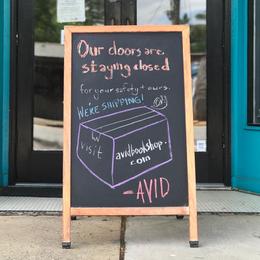 Our doors are
staying closed
for your safety + ours.
WE'RE SHIPPING!
visit
avidbookshop.
com
-AVID